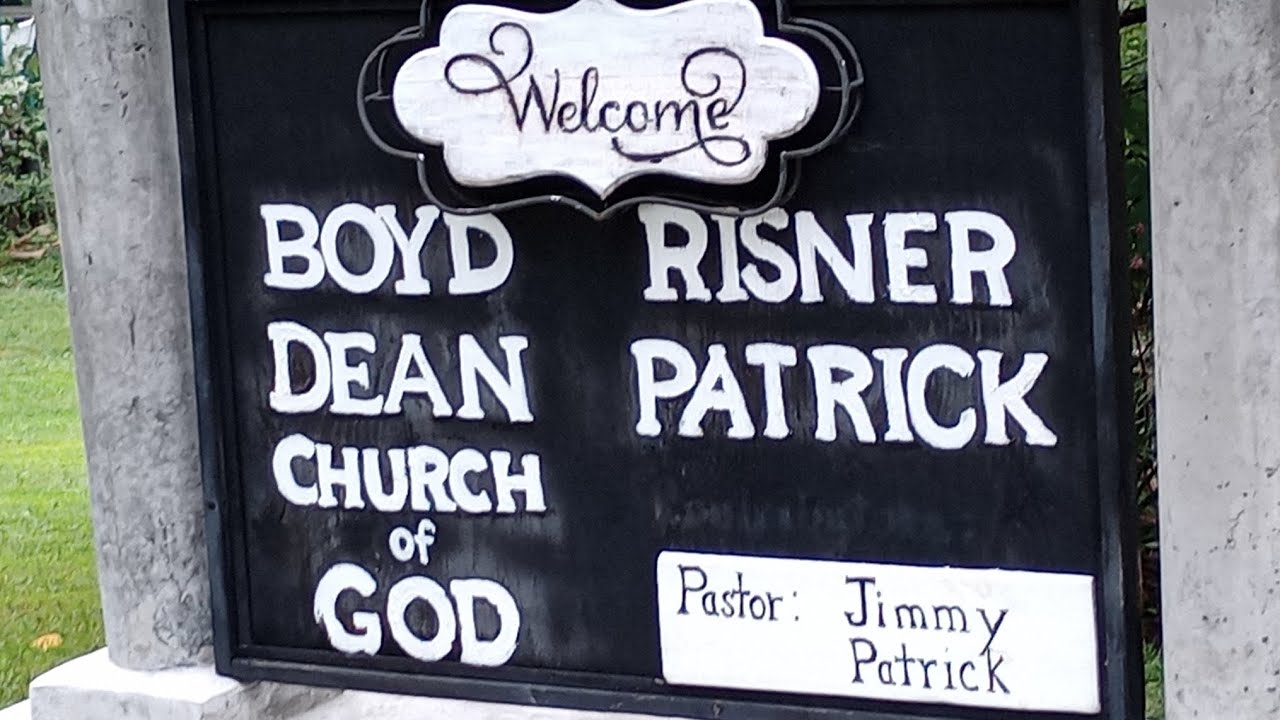 Welcome
BOYD RISNER
DEAN PATRICK
CHURCH
of
GOD
Pastor: Jimmy
Patrick